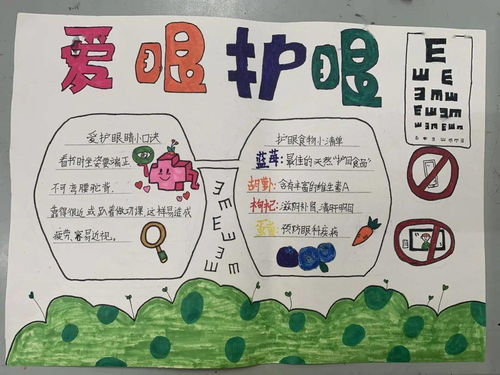 爱眼护眼
爱护眼睛小口诀
看书时坐姿要端正
不可弯腰驼背,
靠得很近或趴着做功课,这样易造成
疲劳,容易近视。
护眼食物小清单
蓝莓:最佳的天然“护目食品”
胡萝卜:含有丰富的维生素A
枸杞:滋阴补肾,清肝明目
蛋黄:预防眼科疾病